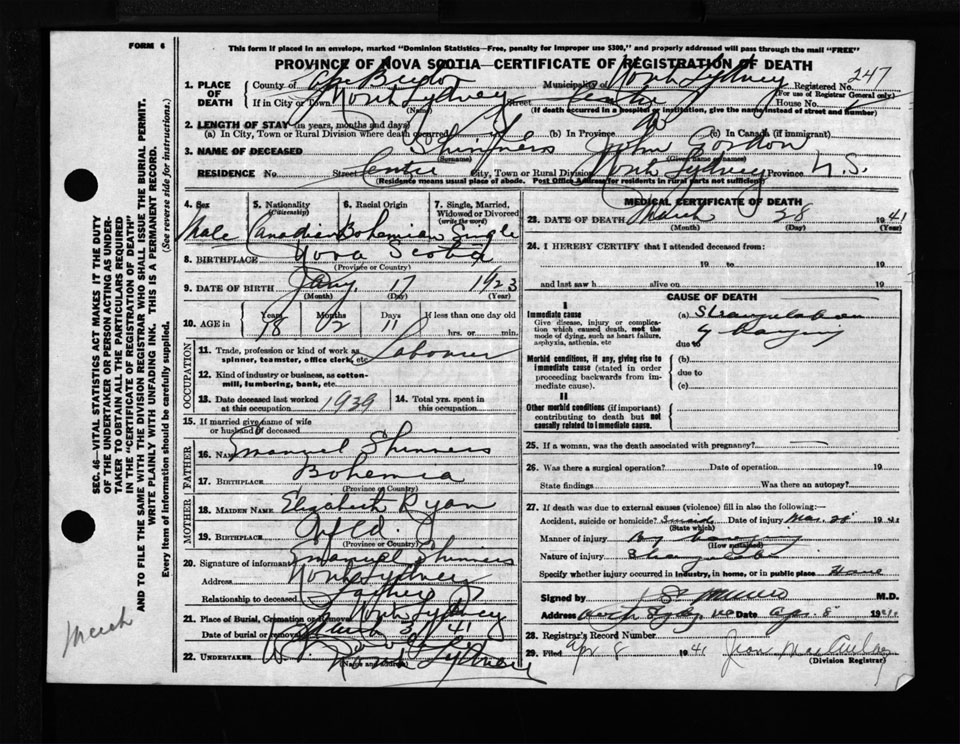 FORM 6
This form if placed in an envelope, marked "Dominion Statistics—Free, penalty for improper use $300," and properly addressed will pass through the mail "FREE"
PROVINCE OF NOVA SCOTIA—CERTIFICATE OF REGISTRATION OF DEATH
1. PLACE OF DEATH County of Cape Breton Municipality of North Sydney Registered No. 247
(For use of Registrar General only)
If in City or Town North Sydney Street Centre House No.
(Name) (If death occurred in a hospital or institution, give the name instead of street and number)
2. LENGTH OF STAY (in years, months and days)
(a) In City, Town or Rural Division where death occurred (b) In Province (c) In Canada (if immigrant)
3. NAME OF DECEASED Shinners John Gordon
(Surname) (Given name or names)
RESIDENCE No Street Centre City, Town or Rural Division North Sydney Province N.S.
(Residence means usual place of abode. Post Office Address for residents in rural parts not sufficient)
4. Sex 5. Nationality (Citizenship) 6. Racial Origin 7. Single, Married, Widowed or Divorced (write the word)
Male Canadian Bohemian Single
8. BIRTHPLACE Nova Scotia
(Province or Country)
9. DATE OF BIRTH Jany. 17 1923
(Month) (Day) (Year)
10. AGE in Years Months Days If less than one day old
18 2 11 hrs. or min.
OCCUPATION
11. Trade, profession or kind of work as spinner, teamster, office clerk, etc. Labourer
12. Kind of industry or business, as cotton-mill, lumbering, bank, etc.
13. Date deceased last worked at this occupation 1939 14. Total yrs. spent in this occupation
15. If married give name of wife or husband of deceased
FATHER
16. NAME Emanuel Shinners
17. BIRTHPLACE Bohemia
(Province or Country)
MOTHER
18. MAIDEN NAME Elizabeth Ryan
19. BIRTHPLACE Nfld.
(Province or Country)
20. Signature of informant Emanuel Shinners
Address North Sydney
Relationship to deceased Father
21. Place of Burial, Cremation or Removal North Sydney
Date of burial or removal 41
22. UNDERTAKER North Sydney
(Name and Address)
MEDICAL CERTIFICATE OF DEATH
23. DATE OF DEATH March 28 1941
(Month) (Day) (Year)
24. I HEREBY CERTIFY that I attended deceased from:
19 to 19
and last saw h alive on 19
CAUSE OF DEATH
I
Immediate cause
Give disease, injury or complication which caused death, not the mode of dying, such as heart failure, asphyxia, asthenia, etc
(a) Strangulation
due to
Morbid conditions, if any, giving rise to immediate cause (stated in order proceeding backwards from immediate cause).
(b)
due to
(c)
II
Other morbid conditions (if important) contributing to death but not causally related to immediate cause.
25. If a woman, was the death associated with pregnancy?
26. Was there a surgical operation? Date of operation 19
State findings Was there an autopsy?
27. If death was due to external causes (violence) fill in also the following:—
Accident, suicide or homicide? Suicide Date of injury Mar. 28 1941
(State which)
Manner of injury By hanging
(How sustained)
Nature of injury Strangulation
Specify whether injury occurred in industry, in home, or in public place Home
Signed by M.D.
Address North Sydney Date Apr. 8 19
28. Registrar's Record Number
29. Filed Apr 8 1941 Jean
(Division Registrar)
SEC. 46—VITAL STATISTICS ACT MAKES IT THE DUTY
OF THE UNDERTAKER OR PERSON ACTING AS UNDER-
TAKER TO OBTAIN ALL THE PARTICULARS REQUIRED
IN THE "CERTIFICATE OF REGISTRATION OF DEATH"
AND TO FILE THE SAME WITH THE DIVISION REGISTRAR WHO SHALL ISSUE THE BURIAL PERMIT.
WRITE PLAINLY WITH UNFADING INK. THIS IS A PERMANENT RECORD.
Every item of information should be carefully supplied. (See reverse side for instructions.)